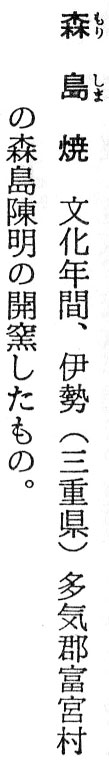 森島焼　文化年間、伊勢（三重県）多気郡富宮村
の森島陳明の開窯したもの。
もり しま